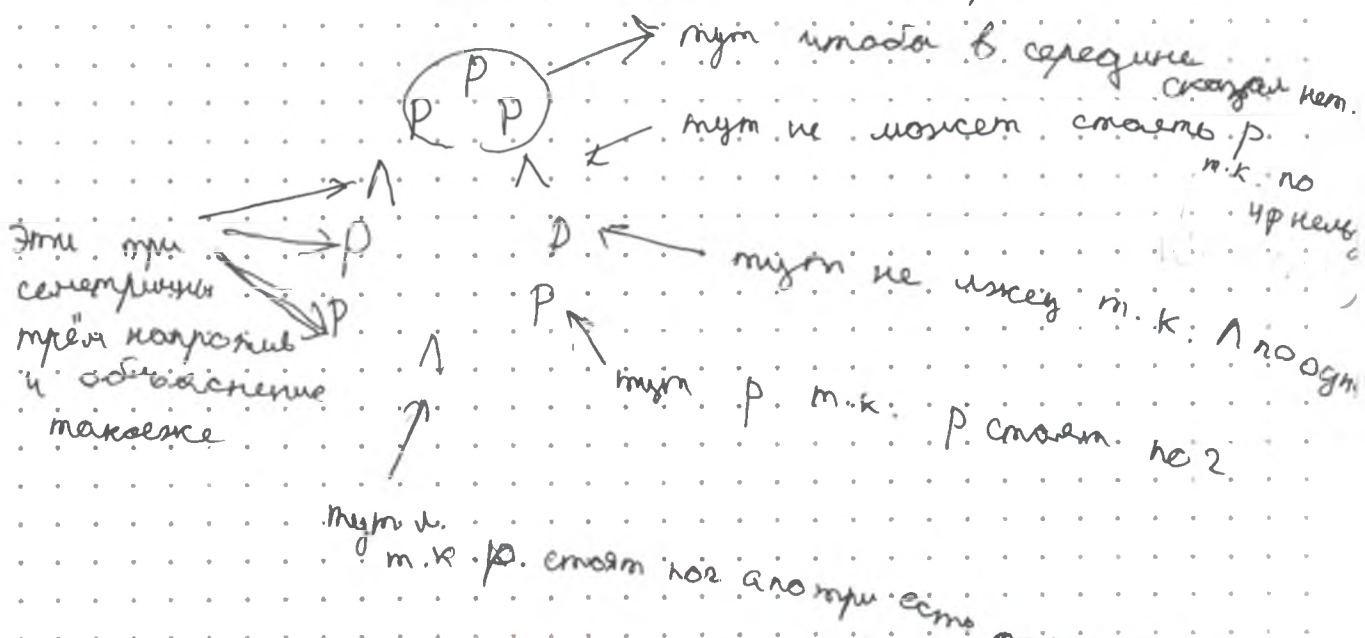 тут чтобы в середине
сказал нет.
Р
Р Р
тут не может стоять р.
т.к. по
4р нельз
Л Л
Р Р
Эти три
семетричны
трём напротив
и объяснение
такоеже
тут не лжец т.к. Л по одн
Р Р
Л
тут р т.к. р стоят по 2
тут л.
т.к р. стоят по 2 а по три есть